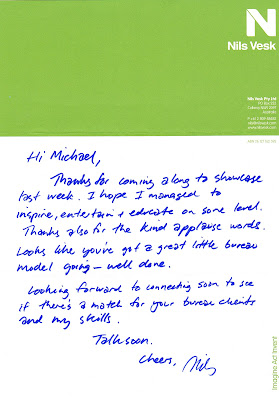 N
Nils Vesk
Nils Vesk Pty Ltd
Hi Michael,
Thanks for coming along to showcase
last week. I hope I managed to
inspire, entertain & educate on some level.
Thanks also for the kind applause words.
Looks like you've got a great little bureau
model going - well done.
Looking forward to connecting soon to see
if there's a match for your bureau clients
and my skills.
Talk soon.
Cheers, Nils
Imagine Ad Invent